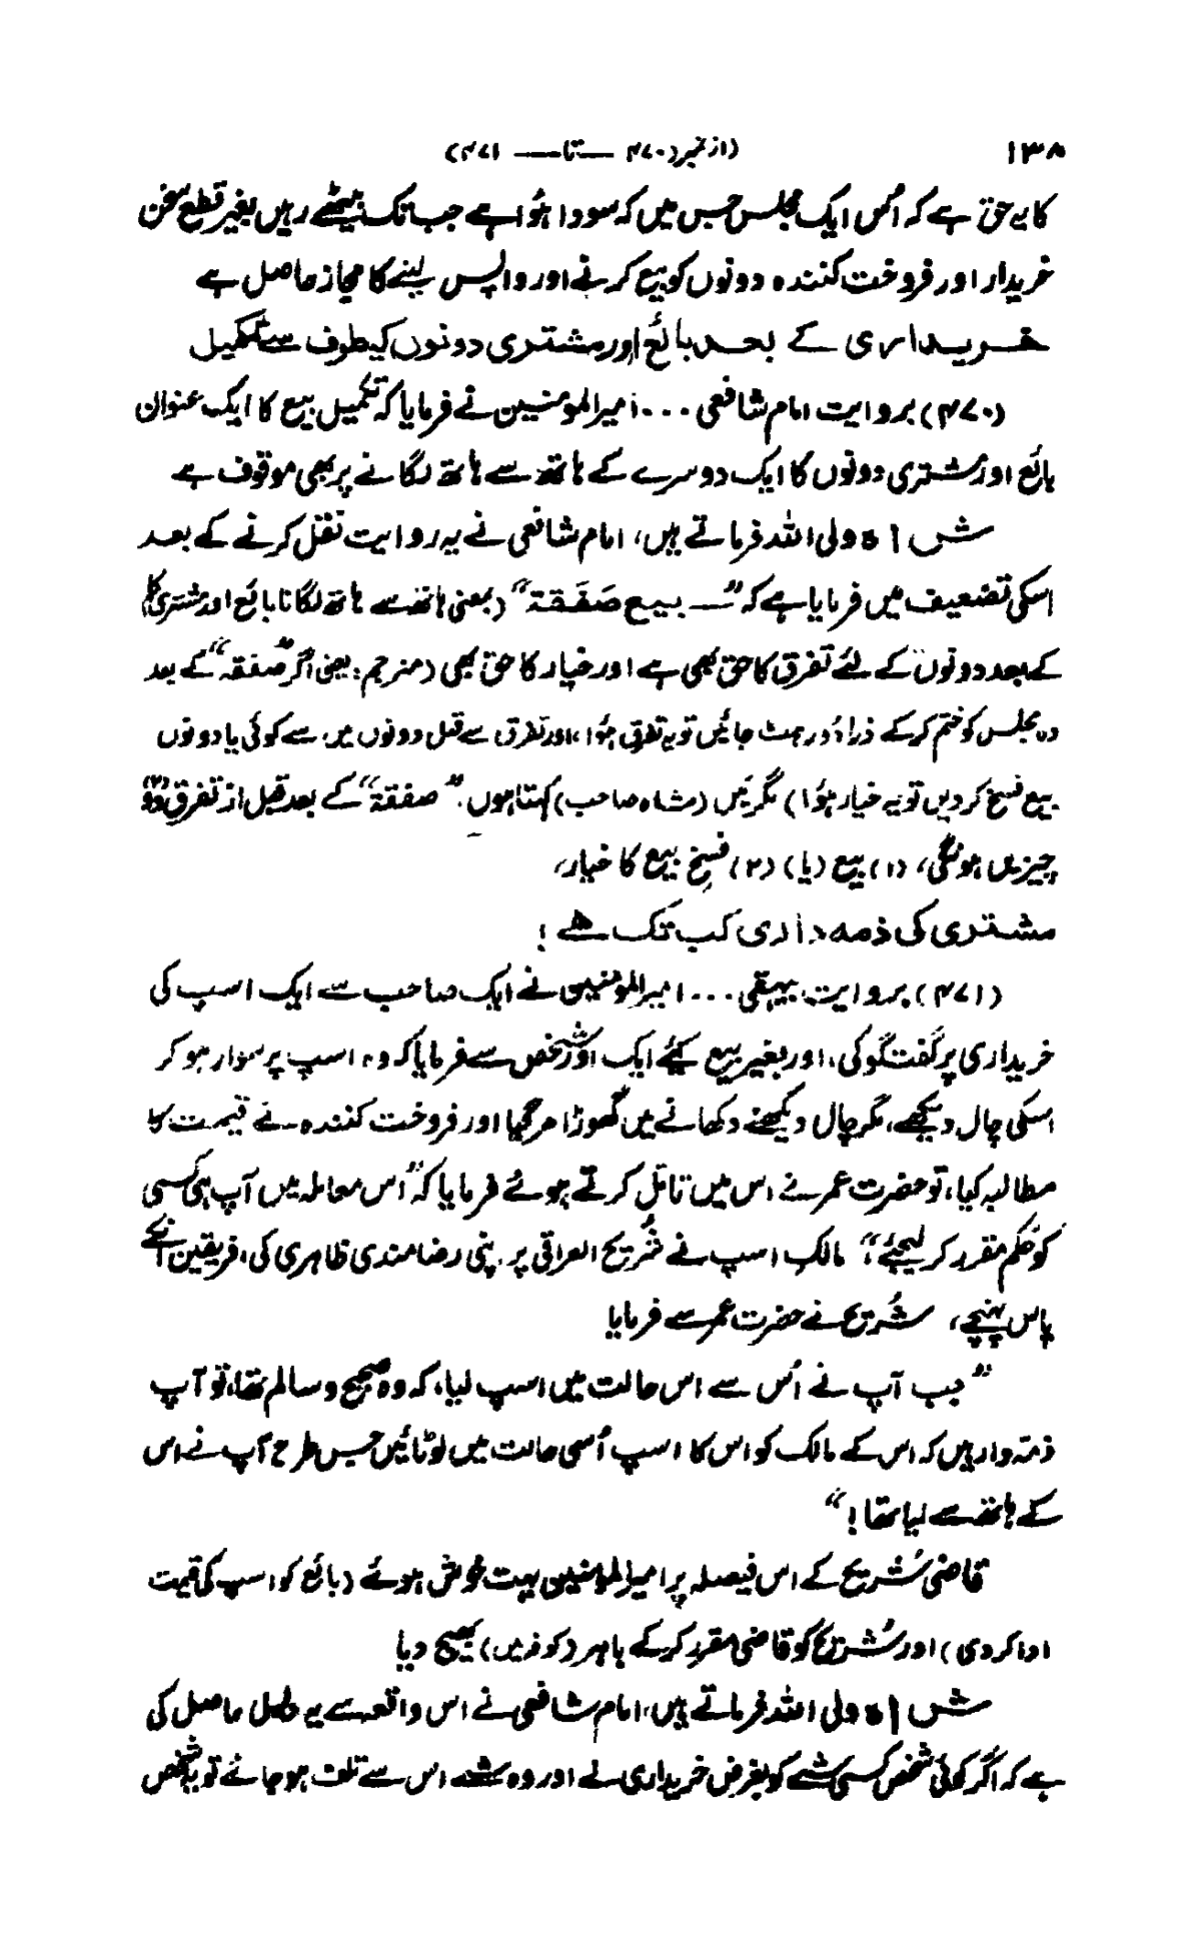 ۱۳۸ (از نمبر (۴۷۰ — تا — ۴۷۱)
کا یہ حق ہے کہ اُس ایک مجلس جس میں کہ سودا ہُوا ہے جب تک بیٹھے رہیں بغیر قطع سخن
خریدار اور فروخت کنندہ دونوں کو بیع کرنے اور واپس لینے کا مجاز حاصل ہے
خریداری کے بعد بائع اور مشتری دونوں کیطرف سے تکمیل
(۴۷۰) بروایت امام شافعی ... امیرالمؤمنین نے فرمایا کہ تکمیل بیع کا ایک عنوان
بائع اور مشتری دونوں کا ایک دوسرے کے ہاتھ سے ہاتھ لگانے پر بھی موقوف ہے
شاہ ولی اللہ فرماتے ہیں، امام شافعی نے یہ روایت نقل کرنے کے بعد
اسکی تضعیف میں فرمایا ہے کہ ”— بیع صَفَقَۃ“ (بمعنی ہاتھ سے ہاتھ لگانا بائع اور مشتری کا)
کے بعد دونوں کے لئے تفرق کا حق بھی ہے اور خیار کا حق بھی (مترجم: یعنی اگر ”صفقہ“ کے بعد
وہ مجلس کو ختم کرکے ذرا دُور ہٹ جائیں تو یہ تفرق ہُوا، اور تفرق سے قبل دونوں میں سے کوئی یا دونوں
بیع فسخ کردیں تو یہ خیار ہُوا) مگر میں (شاہ صاحب) کہتا ہوں۔ ”صفقۃ“ کے بعد قبل از تفرق دو (۲)
چیزیں ہونگی، (۱) بیع (یا) (۲) فسخِ بیع کا خیار،
مشتری کی ذمہ داری کب تک ہے!
(۴۷۱) بروایت بیہقی ... امیرالمؤمنین نے ایک صاحب سے ایک اسپ کی
خریداری پر گفتگو کی، اور بغیر بیع کیے ایک اور شخص سے فرمایا کہ وہ اسپ پر سوار ہو کر
اسکی چال دیکھے، مگر چال دیکھنے دکھانے میں گھوڑا مرگیا اور فروخت کنندہ نے قیمت کا
مطالبہ کیا، تو حضرت عمر نے اس میں تامّل کرتے ہوئے فرمایا کہ ”اس معاملہ میں آپ ہی کسی
کو حَکم مقرر کر لیجیئے“ مالکِ اسپ نے شُریح العراقی پر اپنی رضامندی ظاہری کی، فریقین انکے
پاس پہنچے، شُریح نے حضرت عمر سے فرمایا
”جب آپ نے اُس سے اس حالت میں اسپ لیا، کہ وہ صحیح و سالم تھا، تو آپ
ذمّہ دار ہیں کہ اس کے مالک کو اس کا اسپ اُسی حالت میں لوٹائیں جس طرح آپ نے اس
کے ہاتھ سے لیا تھا!“
قاضی شُریح کے اس فیصلہ پر امیرالمؤمنین بہت خوش ہوئے (بائع کو اسپ کی قیمت
ادا کردی) اور شُریح کو قاضی مقرر کرکے باہر (کوفہ میں) بھیج دیا
شاہ ولی اللہ فرماتے ہیں، امام شافعی نے اس واقعہ سے یہ دلیل حاصل کی
ہے کہ اگر کوئی شخص کسی شے کو بغرض خریداری لے اور وہ شے اس سے تلف ہو جائے تو یہ شخص